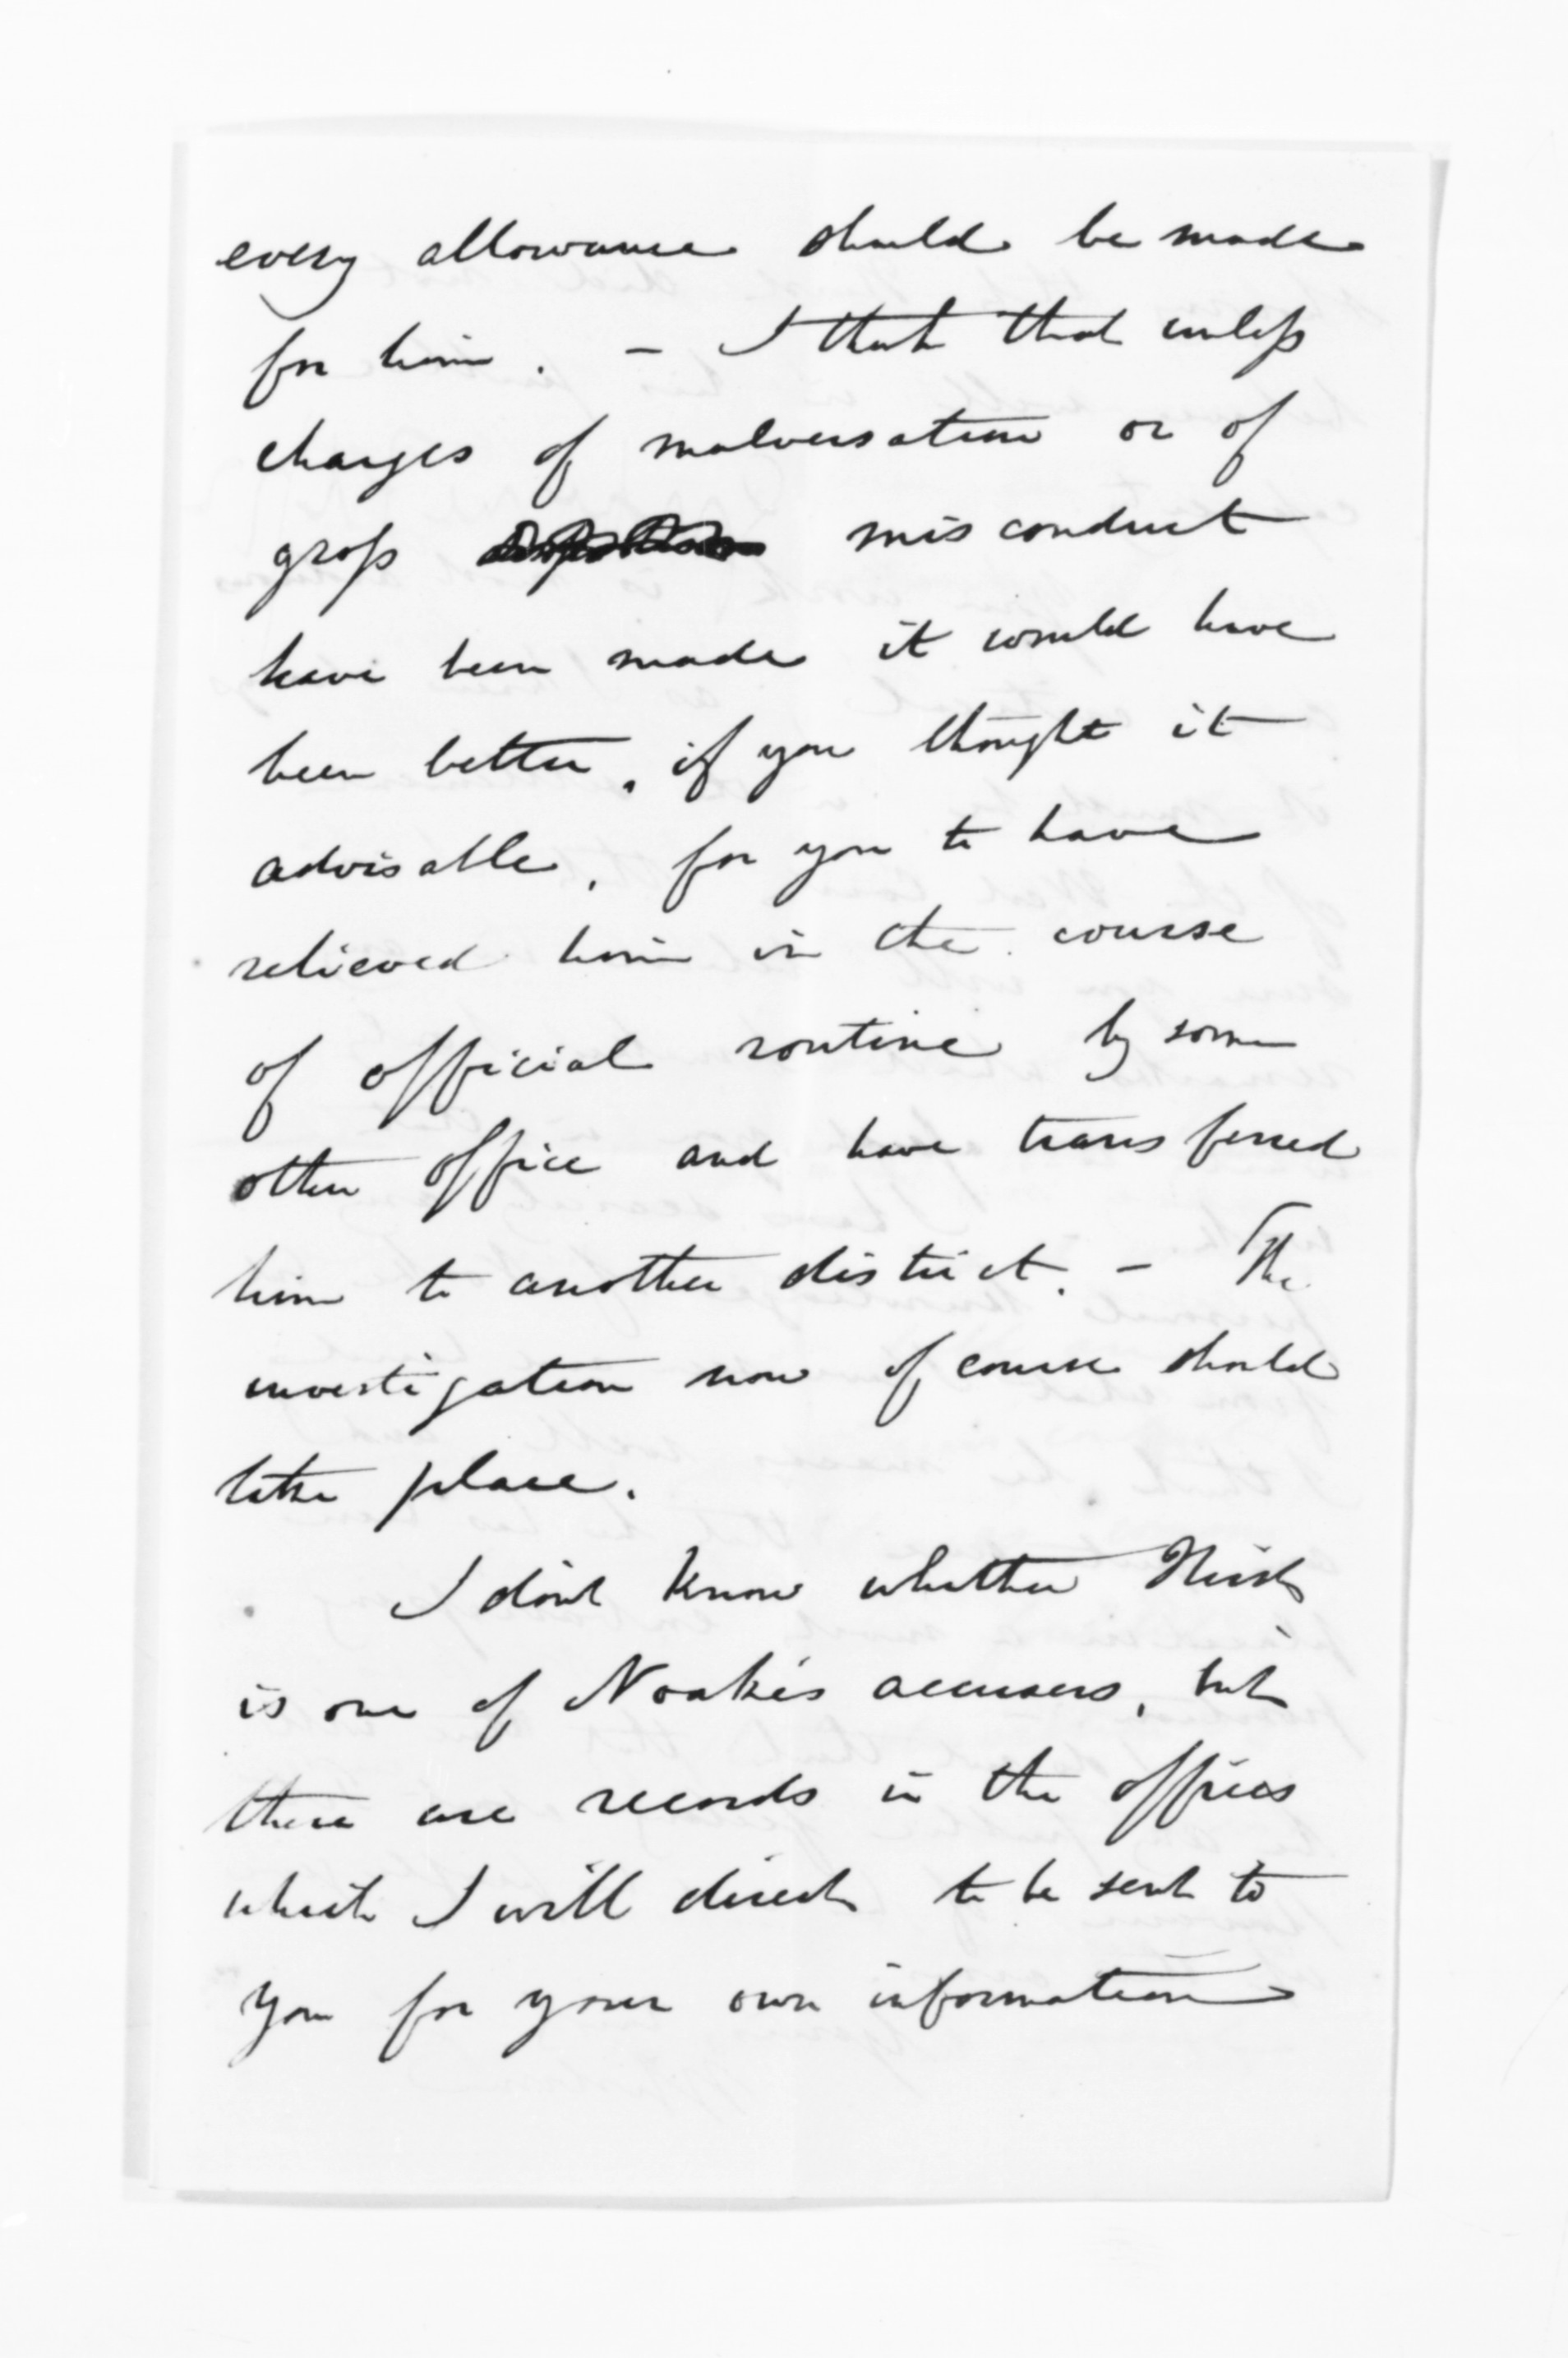 every allowance should be made
for him. – I think that unless
charges of malversation or of
gross misconduct
have been made it would have
been better, if you thought it
advisable, for you to have
relieved him in the course
of official routine by some
other office and have transferred
him to another district. – The
investigation now of course should
take place.
I don't know whether
is one of Noake's accusers, but
there are records in the offices
which I will direct to be sent to
you for your own information